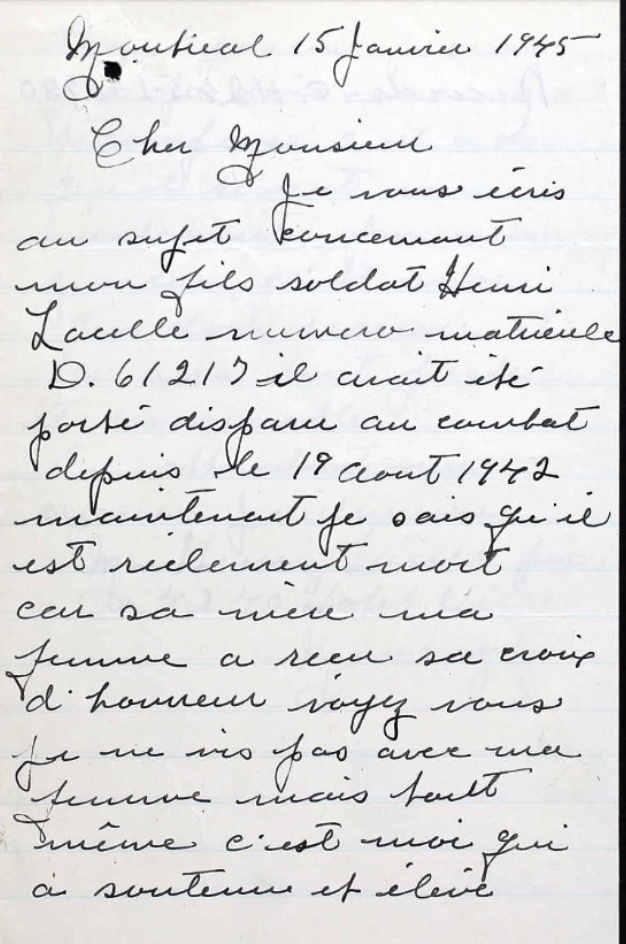 Montreal 15 Janvier 1945
Cher Monsieur
Je vous écris
au sujet concernant
mon fils soldat Henri
Lacelle numero matricule
D. 61217 il avait été
porté disparu au combat
depuis le 19 aout 1942
maintenant je sais qu'il
est réelement mort
car sa mère ma
femme a recu sa croix
d'honneur voyez vous
je ne vis pas avec ma
femme mais toult
même c'est moi qui
a soutenu et élevé